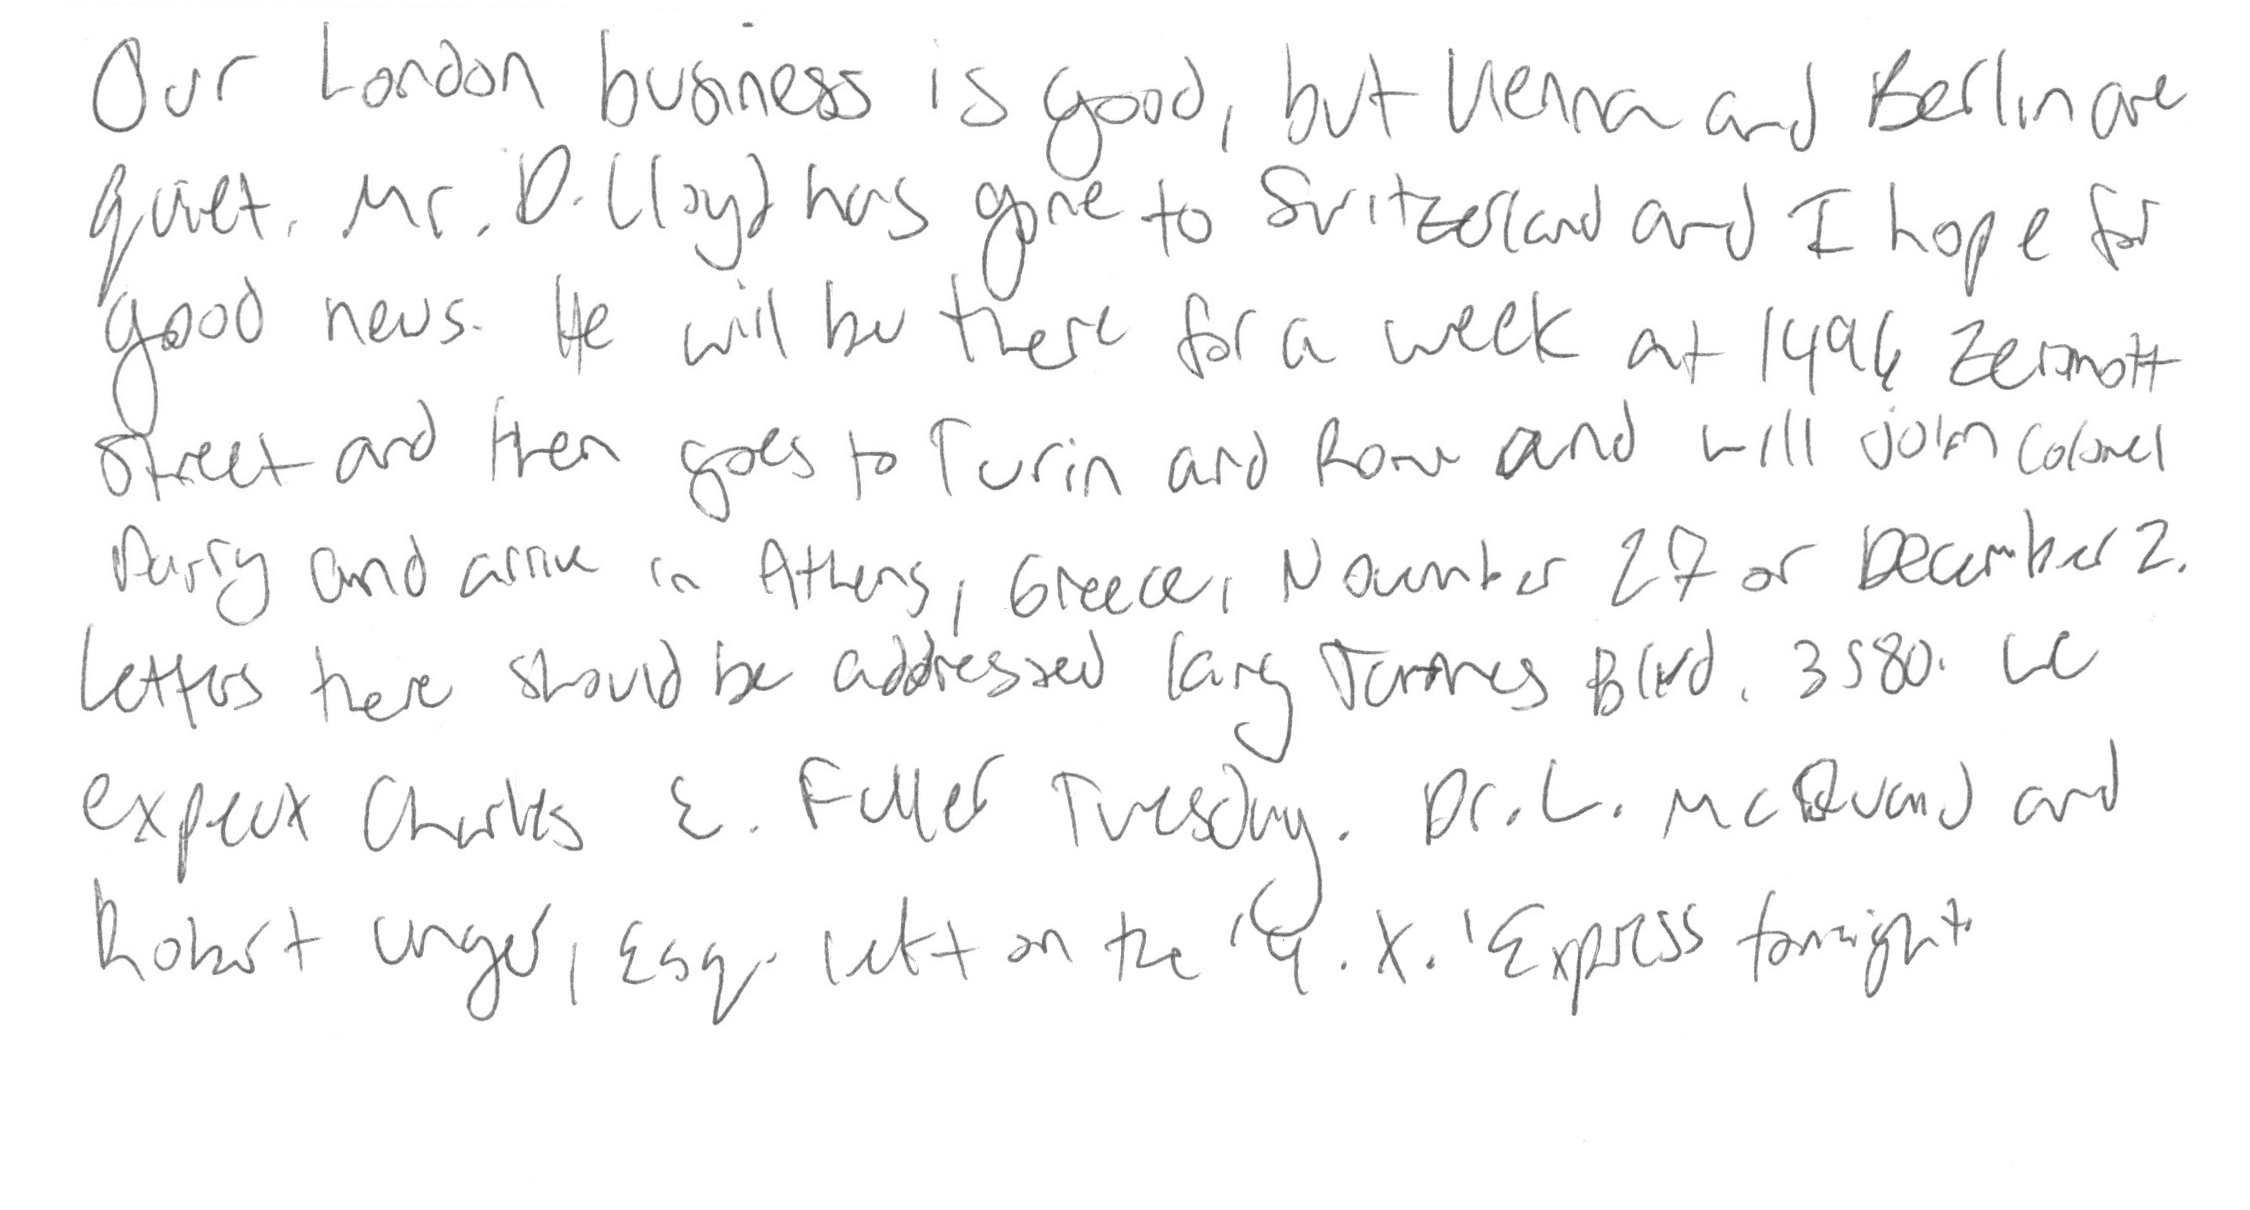 Our London business is good, but Vienna and Berlin are
quiet. Mr. D. Lloyd has gone to Switzerland and I hope for
good news. He will be there for a week at 1496 Zermott
Street and then goes to Turin and Rome and will join Colonel
Parry and arrive in Athens, Greece, November 27 or December 2.
Letters there should be addressed King James Blvd. 3580. We
expect Charles E. Fuller Tuesday. Dr. L. McQuaid and
Robert Unger, Esq. left on the 'Y. X.' Express tonight